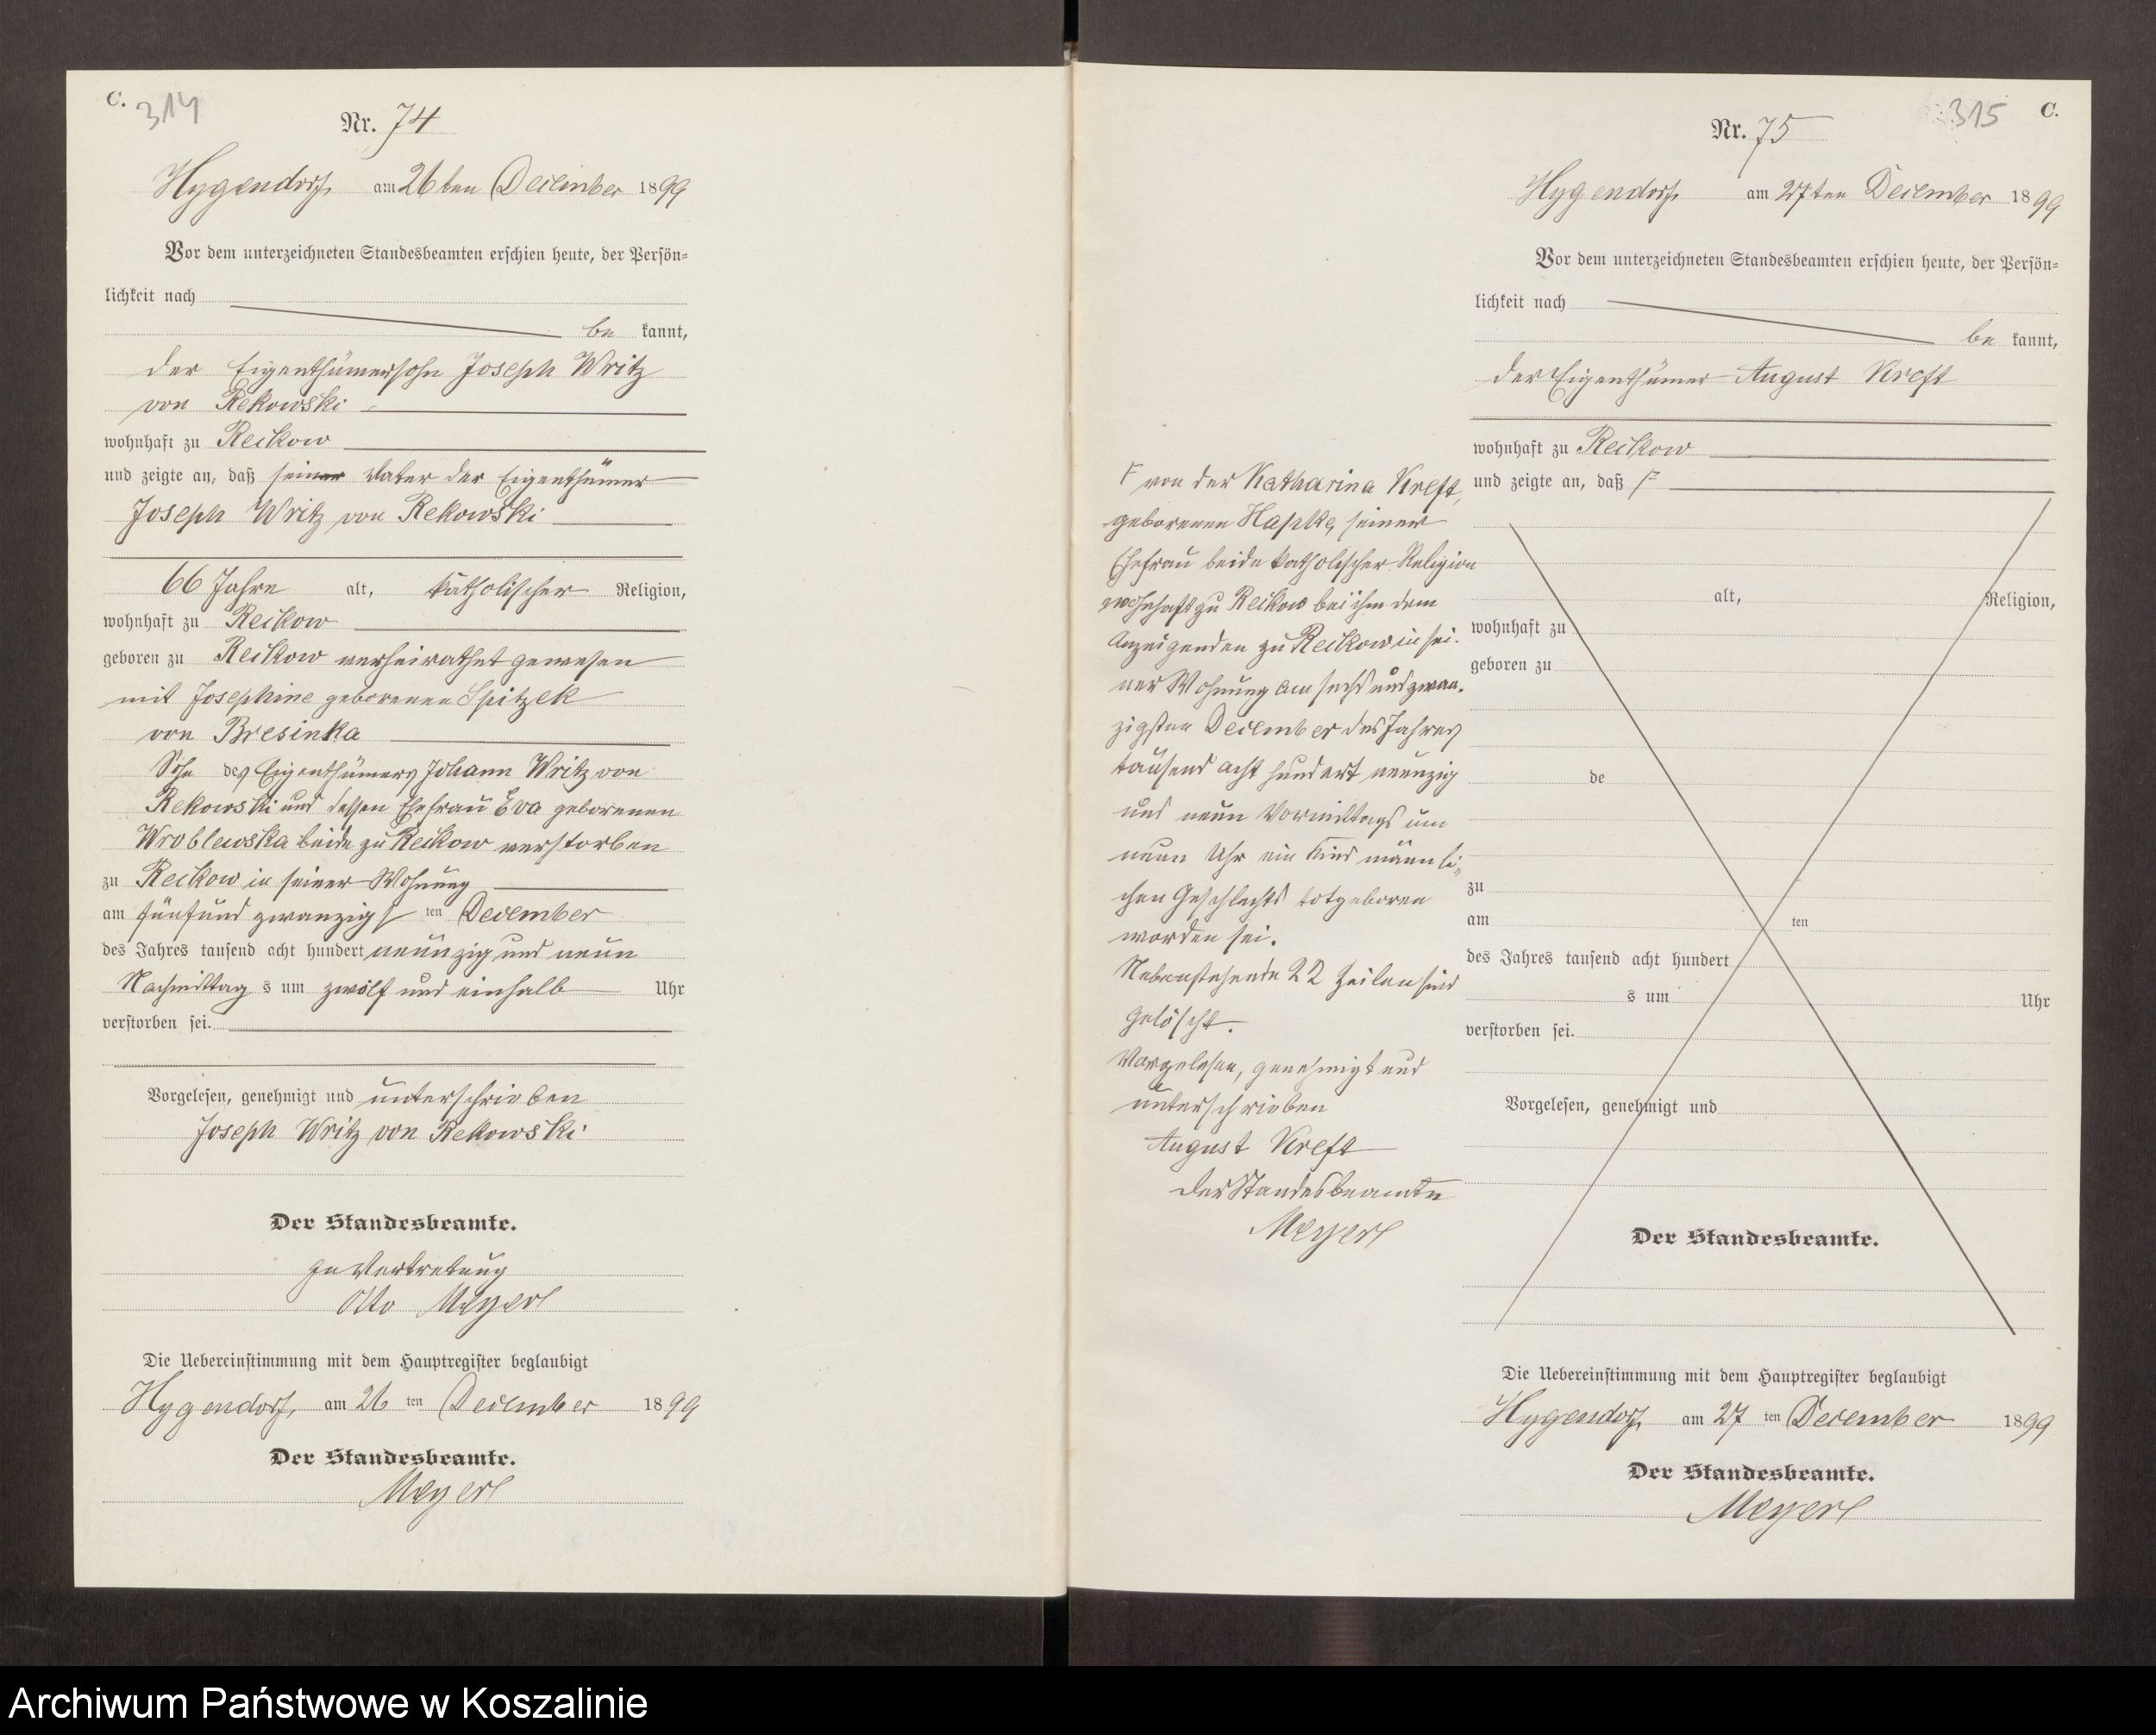 C.
314
Nr. 74
Hygendorf, am 26ten December 1899
Vor dem unterzeichneten Standesbeamten erschien heute, der Persön-
lichkeit nach
be kannt,
der Eigenthümersohn Joseph Writz
von Rekowski
wohnhaft zu Reckow
und zeigte an, daß seiner Vater der Eigenthümer
Joseph Writz von Rekowski
66 Jahre alt, katholischer Religion,
wohnhaft zu Reckow
geboren zu Reckow verheirathet gewesen
mit Josephine geborenen Spitzek
von Bresinka
Sohn des Eigenthümers Johann Writz von
Rekowski und dessen Ehefrau Eva geborenen
Wroblewska beide zu Reckow verstorben
zu Reckow in seiner Wohnung
am fünfund zwanzigs ten December
des Jahres tausend acht hundert neunzig und neun
Nachmittag s um zwölf und einhalb Uhr
verstorben sei.
Vorgelesen, genehmigt und unterschrieben
Joseph Writz von Rekowski
Der Standesbeamte.
In Vertretung
Otto Meyerl
Die Uebereinstimmung mit dem Hauptregister beglaubigt
Hygendorf, am 26 ten December 1899
Der Standesbeamte.
Meyerl
315
C.
Nr. 75
Hygendorf, am 27ten December 1899
Vor dem unterzeichneten Standesbeamten erschien heute, der Persön-
lichkeit nach
be kannt,
der Eigenthümer August Kreft
wohnhaft zu Reckow
und zeigte an, daß F
alt, Religion,
wohnhaft zu
geboren zu
de
zu
am ten
des Jahres tausend acht hundert
s um Uhr
verstorben sei.
Vorgelesen, genehmigt und
Der Standesbeamte.
F von der Katharina Kreft,
geborenen Hapke, seiner
Ehefrau beide katholischer Religion
wohnhaft zu Reckow bei ihm dem
Anzeigenden zu Reckow in sei-
ner Wohnung am sechs und zwan-
zigsten December des Jahres
tausend acht hundert neunzig
und neun Vormittags um
neun Uhr ein Kind männli-
chen Geschlechts totgeboren
worden sei.
Nebenstehende 22 Zeilen sind
gelöscht.
Vorgelesen, genehmigt und
unterschrieben
August Kreft
Der Standesbeamte
Meyerl
Die Uebereinstimmung mit dem Hauptregister beglaubigt
Hygendorf, am 27 ten December 1899
Der Standesbeamte.
Meyerl
Archiwum Państwowe w Koszalinie